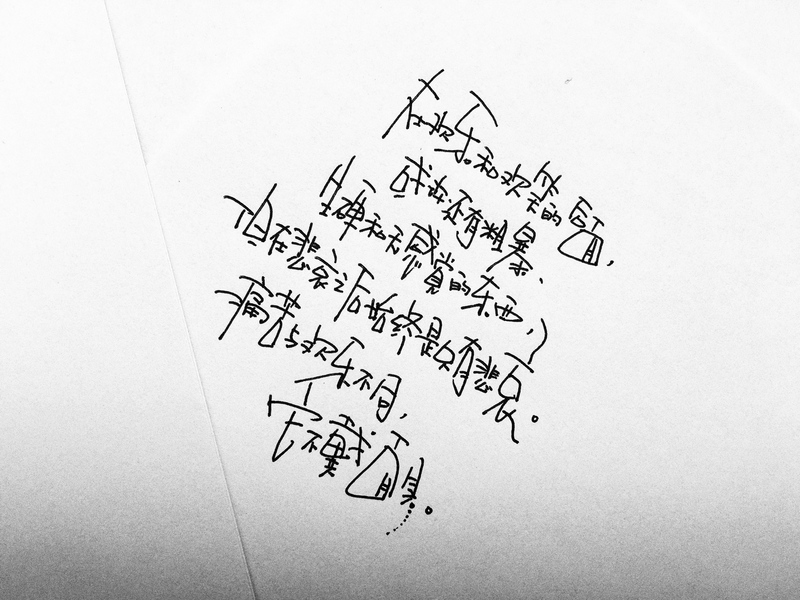 在欢乐和欢笑的后面,
或许还有粗暴、
生硬和无感觉的东西,
但在悲哀之后始终是只有悲哀。
痛苦与欢乐不同,
它不戴面具。